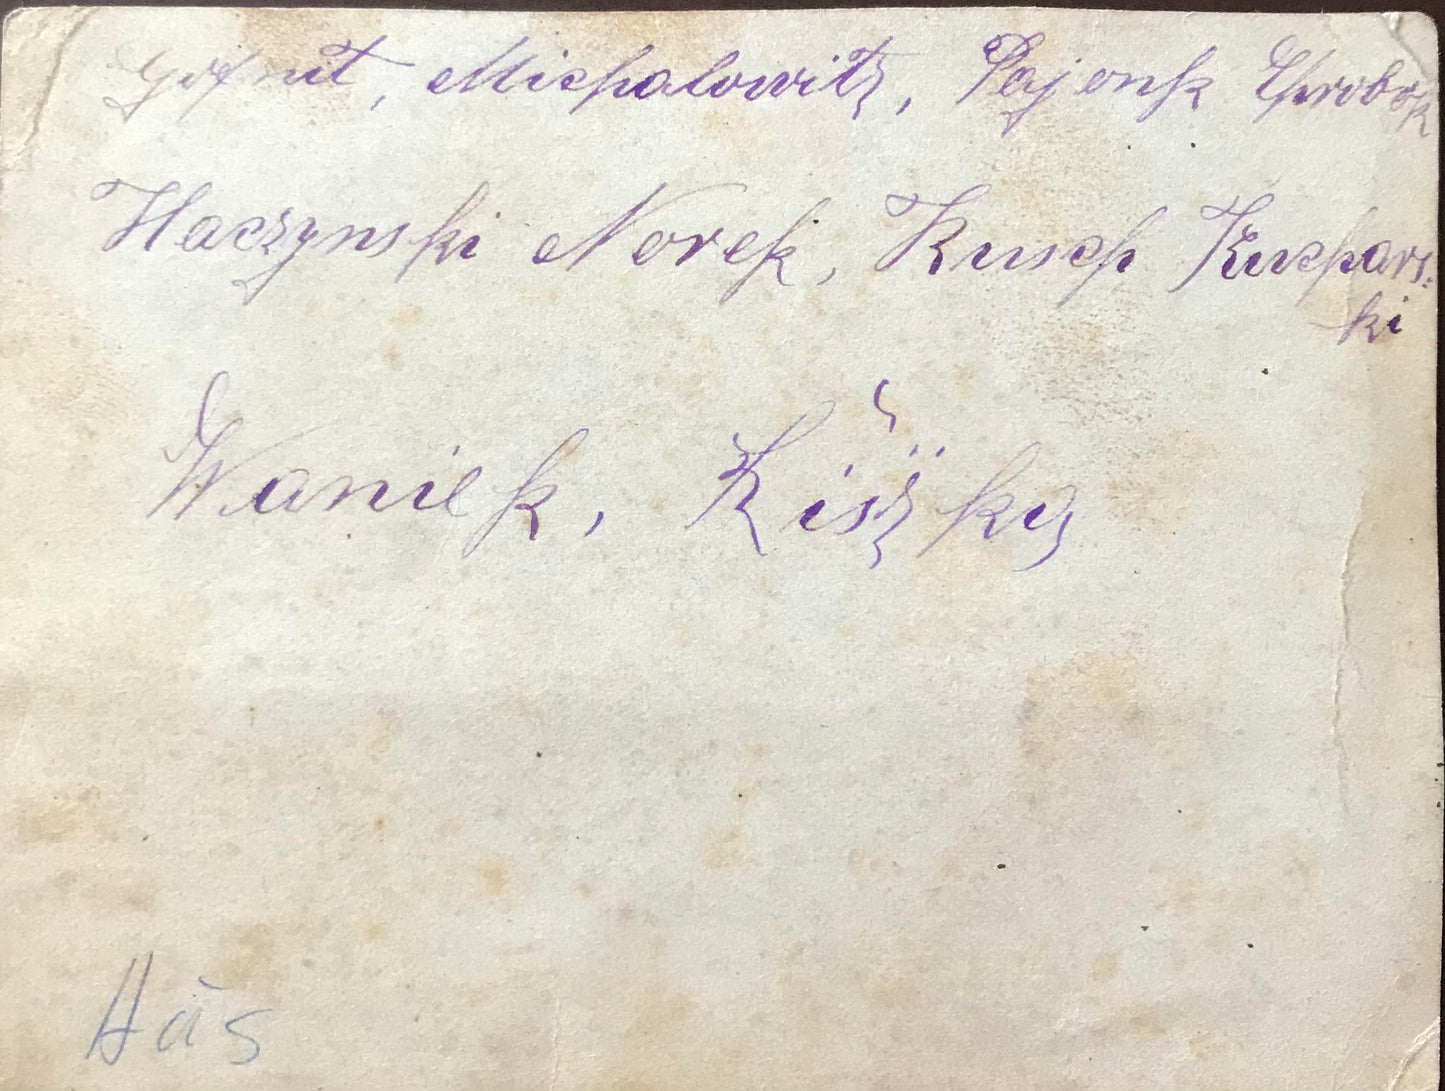 Michalowitz, Pajonk Chrobok
Haczynski Norek, Kusch Kuchars-
ki
Waniek, Kiszka
Häs